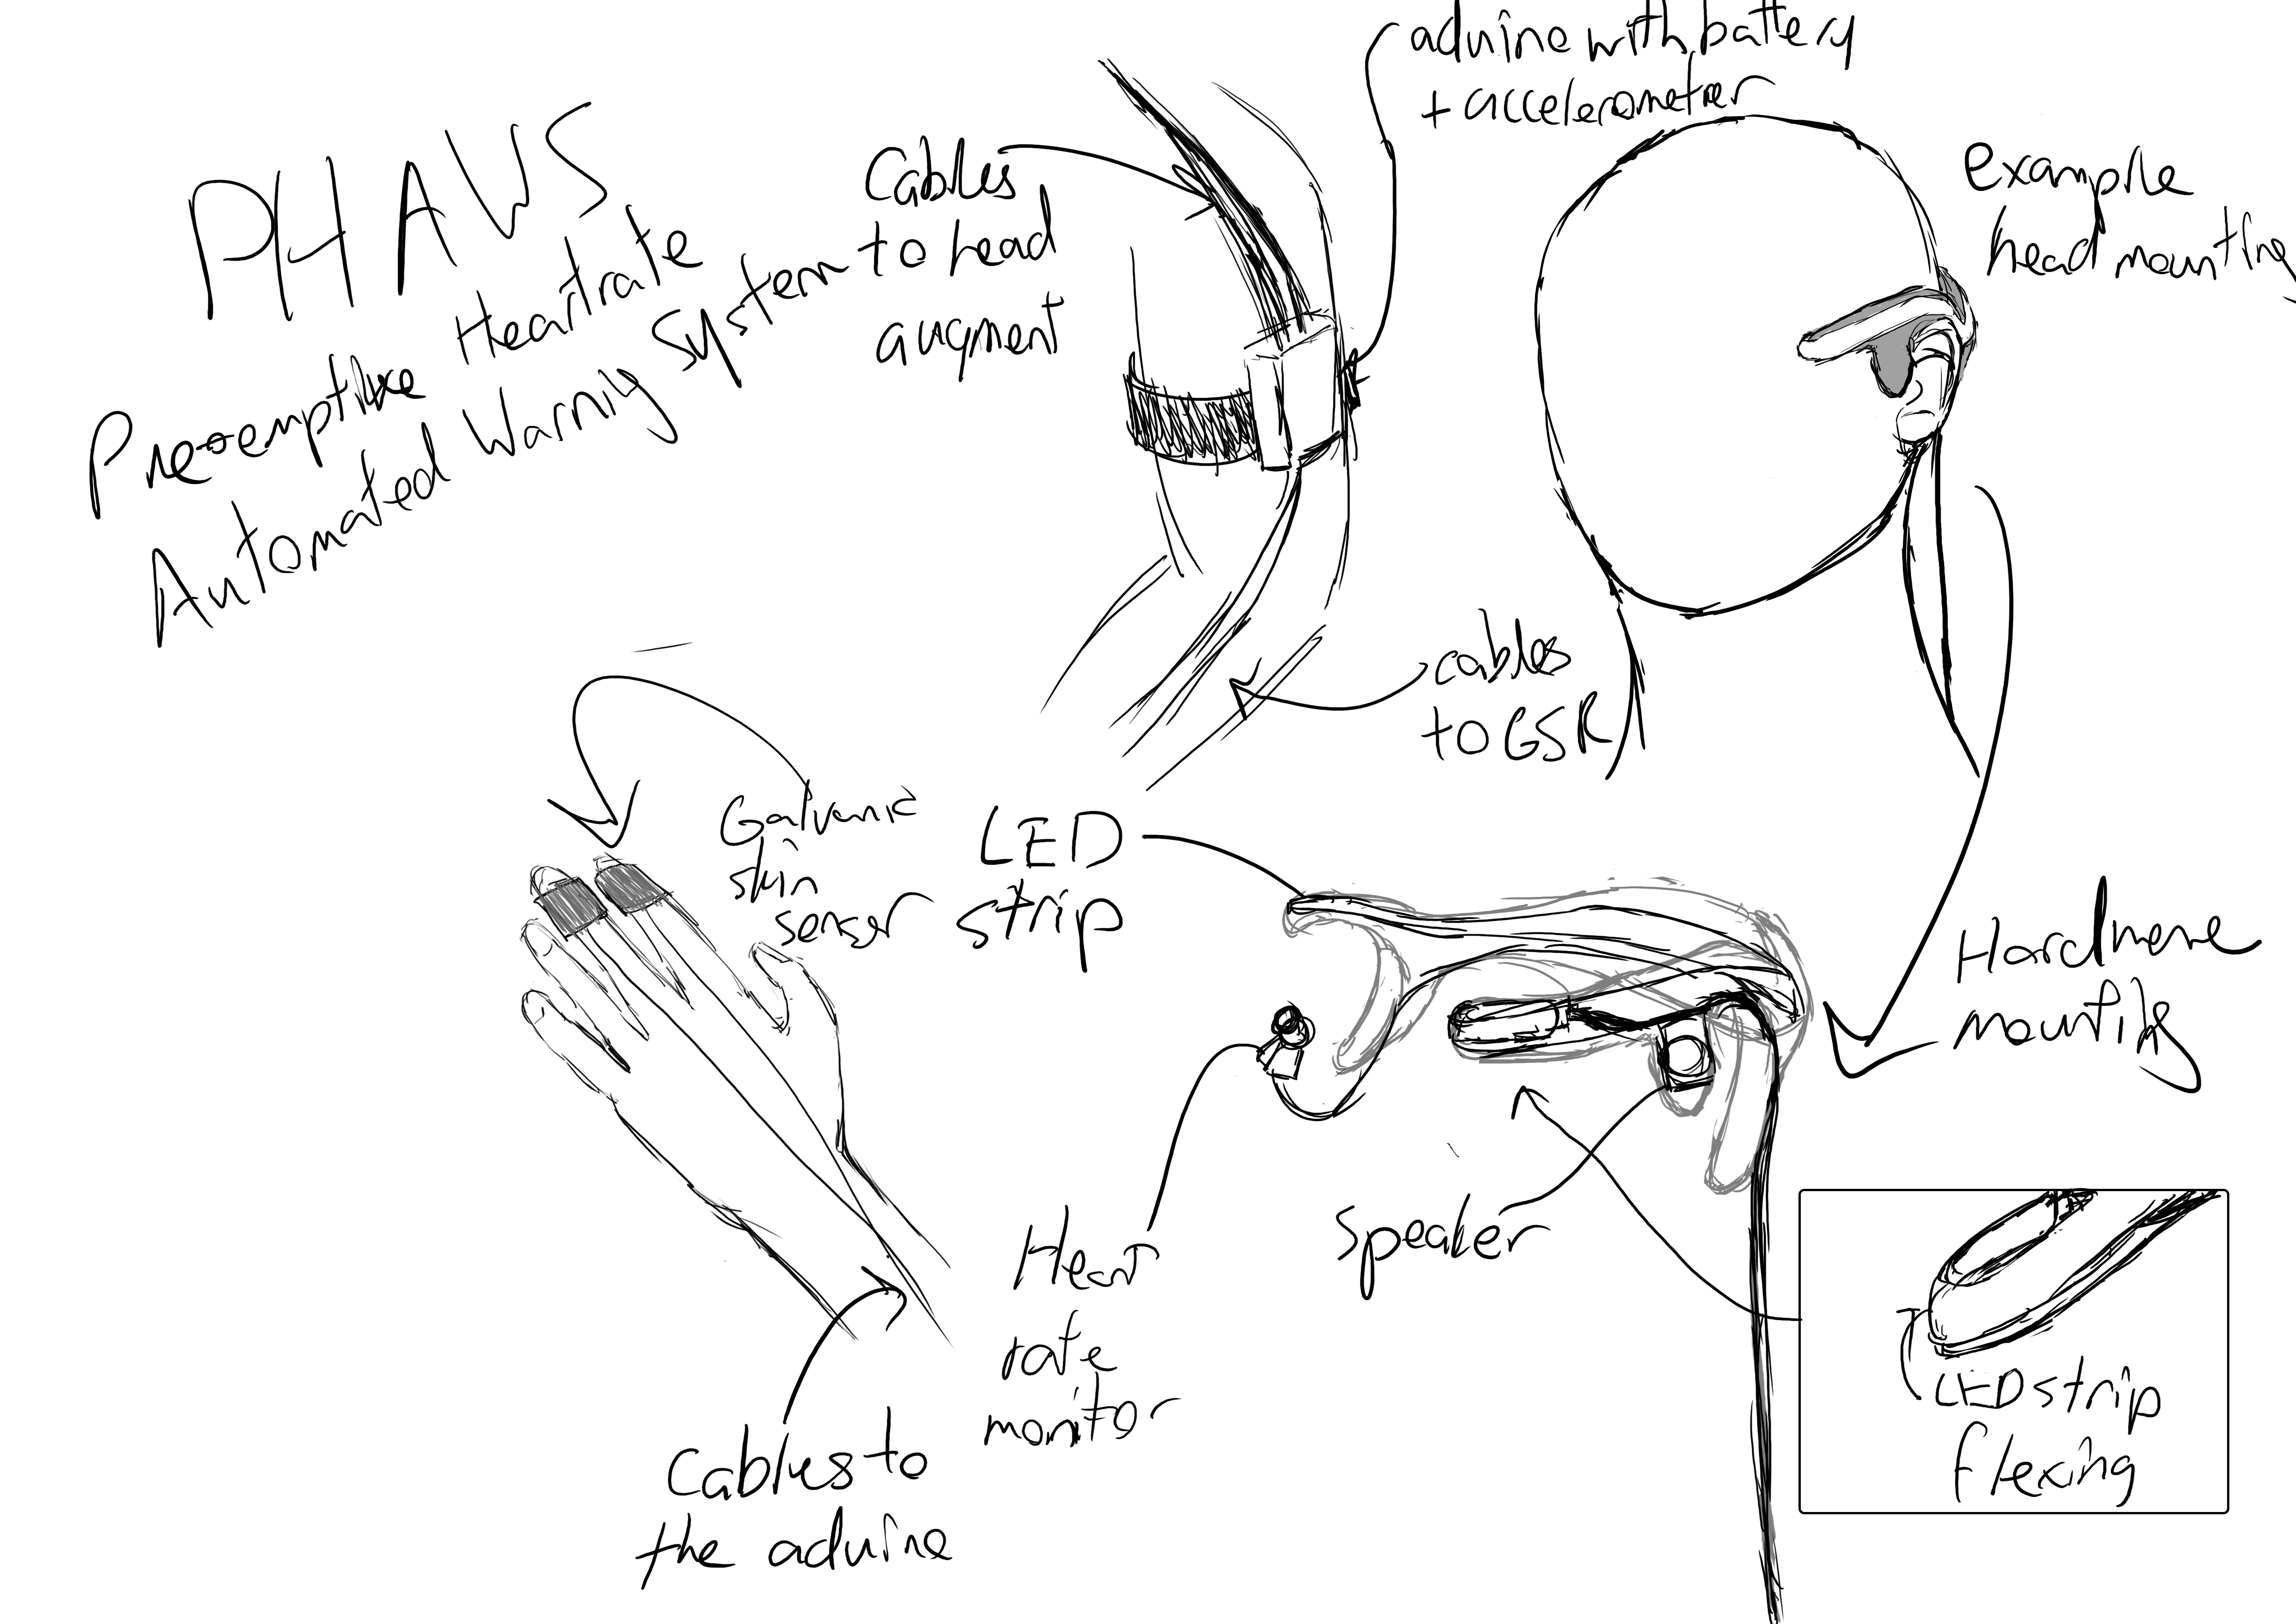 PHAWS
Pre-emptive Heartrate
Automated Warning System
Cables
to head
augment
aduine with battery
+ accelerometer
example
head mounting
cables
to GSR
Galvanic
skin
sensor
LED
strip
Hardware
mounting
Heart
rate
monitor
speaker
LED strip
flexing
Cables to
the aduine